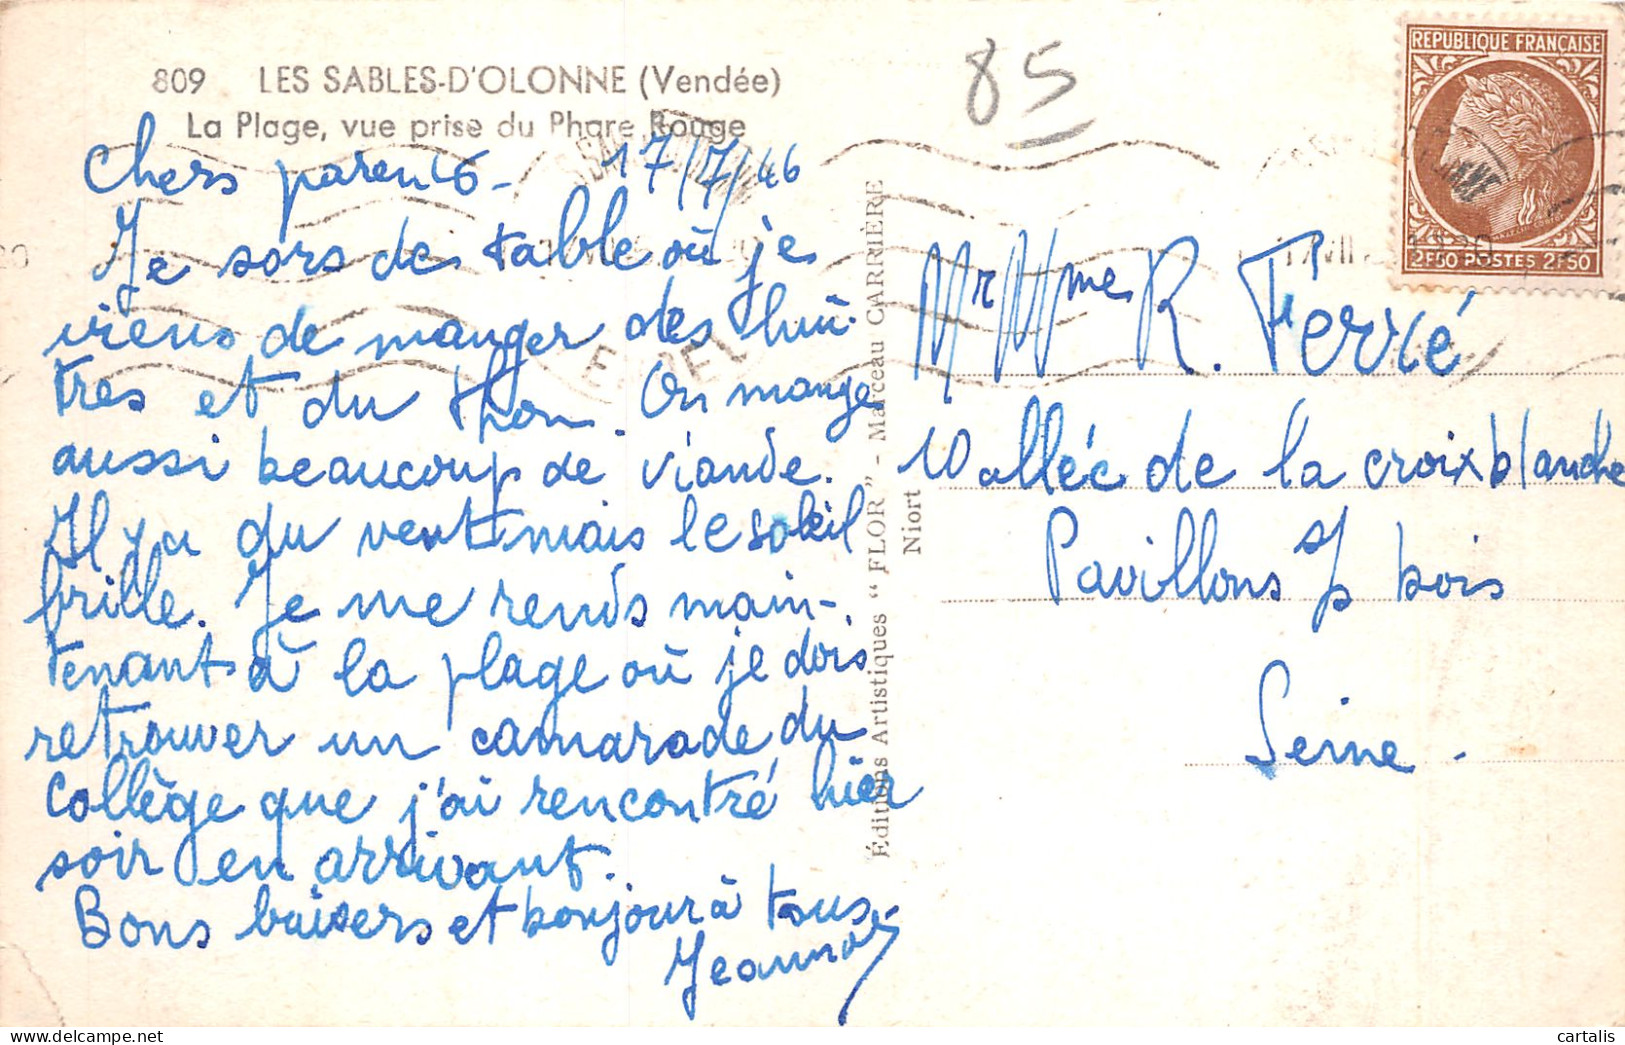 809 LES SABLES-D'OLONNE (Vendée)
La Plage, vue prise du Phare Rouge
85
Chers parents - 17/7/46
Je sors de table où je
viens de manger des huî-
tres et du thon. On mange
aussi beaucoup de viande.
Il y a du vent mais le soleil
brille. Je me rends main-
tenant à la plage où je dois
retrouver un camarade du
collège que j'ai rencontré hier
soir en arrivant.
Bons baisers et bonjour à tous.
Jeannot
Éditions Artistiques "FLOR" - Marceau CARRIÈRE
Niort
REPUBLIQUE FRANÇAISE
2F50 POSTES 2F50
Mr Mme R. Ferré
10 allée de la croix blanche
Pavillons s/s bois
Seine -
cartalis